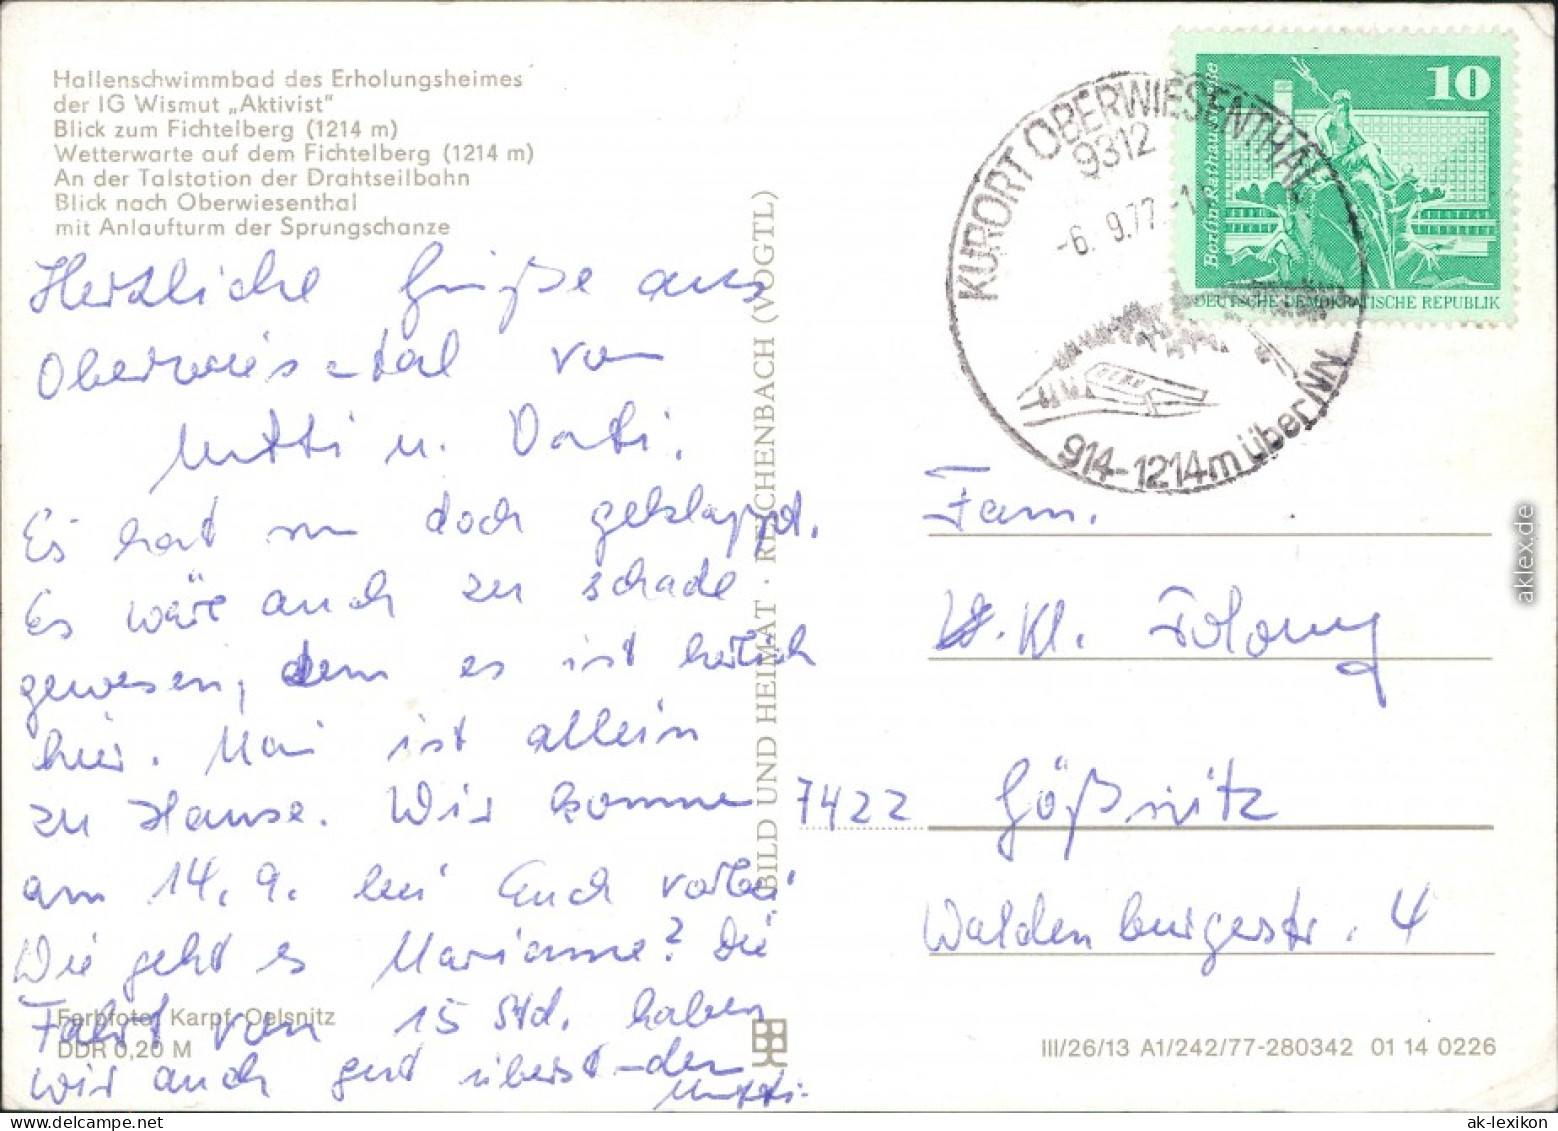 Hallenschwimmbad des Erholungsheimes
der IG Wismut „Aktivist"
Blick zum Fichtelberg (1214 m)
Wetterwarte auf dem Fichtelberg (1214 m)
An der Talstation der Drahtseilbahn
Blick nach Oberwiesenthal
mit Anlaufturm der Sprungschanze
Herzliche Grüße aus
Oberwiesental von
Mutti u. Vati.
Es hat nun doch geklappt.
Es wäre auch zu schade
gewesen, denn es ist herrlich
hier. ist allein
zu Hause. Wir kommen
am 14. 9. bei Euch vorbei
Wie geht es Marianne? Die
Fahrt von 15 Std. haben
wir auch gut überstanden
Mutti.
Farbfoto: Karpf, Oelsnitz
DDR 0,20 M
BILD UND HEIMAT · REICHENBACH (VOGTL)
KURORT OBERWIESENTHAL
9312
-6. 9.77.-1
914-1214m über NN
10
Berlin-Rathausstraße
DEUTSCHE DEMOKRATISCHE REPUBLIK
Fam.
Kl.
7422 Gößnitz
Waldenburgerstr. 4
III/26/13 A1/242/77-280342 01 14 0226
aklex.de
ak-lexikon